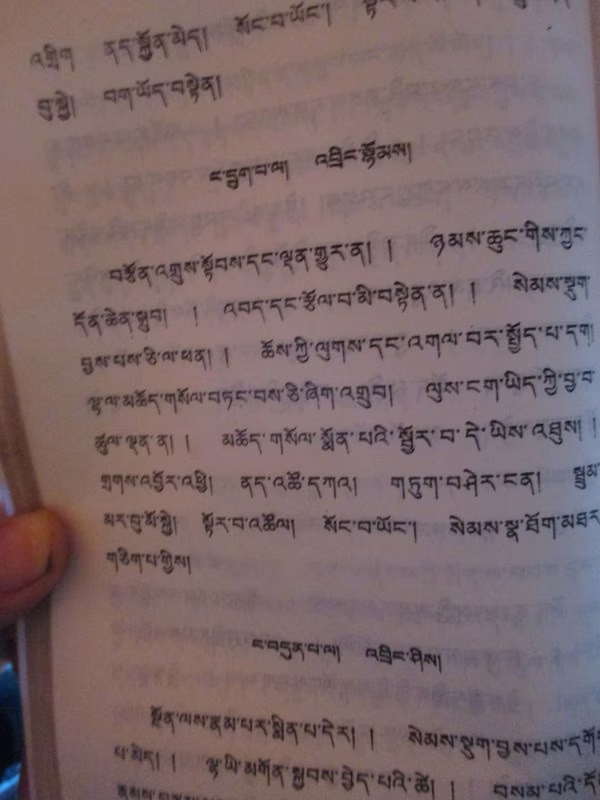 འགྲིག ནད་སྐྱོན་མེད། སོང་བ་ཡོང་།
བུ་སྐྱེ། བག་ཡོད་བསྟེན།
ང་དྲུག་པ་ལ། འབྲིང་སྙོམས།
བརྩོན་འགྲུས་སྟོབས་དང་ལྡན་གྱུར་ན། ། ཉམས་ཆུང་གིས་ཀྱང་
དོན་ཆེན་སྒྲུབ། ། འབད་དང་རྩོལ་བ་མི་བསྟེན་ན། ། སེམས་སྡུག་
བྱས་པས་ཅི་ལ་ཕན། ། ཆོས་ཀྱི་ལུགས་དང་འགལ་བར་སྤྱོད་པ་དག
ལྷ་ལ་མཆོད་གསོལ་བཏང་བས་ཅི་ཞིག་འགྲུབ། ལུས་ངག་ཡིད་ཀྱི་བྱ་བ་
ཚུལ་ལྡན་ན། ། མཆོད་གསོལ་སྨོན་པའི་སྦྱོར་བ་དེ་ཡིས་འཐུས། །
གྲགས་འབྱོར་འཕྲི། ནད་འཚོ་དཀའ། གཏུག་བཤེར་ངན། སྦྲུམ་
མར་བུ་མོ་སྐྱེ། སྟོར་བ་འཚོལ། སོང་བ་ཡོང་། སེམས་སྣ་ཐོག་མཐར་
གཅིག་པ་གྱིས།
ང་བདུན་པ་ལ། འབྲིང་ཤིས།
སྔོན་ལས་རྣམ་པར་སྨིན་པ་དེར། ། སེམས་སྡུག་བྱས་པས་དགོས་
པ་མེད། ། ལྷ་ཡི་མགོན་སྐྱབས་བྱེད་པའི་ཚེ། ། བསམ་པའི་དོ